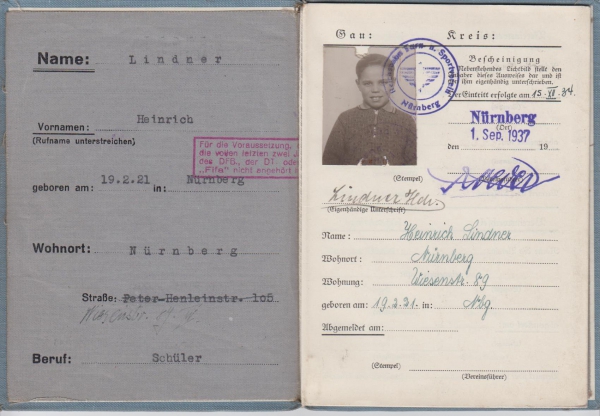 Name: Lindner
Heinrich
Vornamen:
(Rufname unterstreichen)
Für die Voraussetzung,
die vollen letzten zwei
des DFB., der DT. oder
„Fifa" nicht angehört
geboren am: 19.2.21 in: Nürnberg
Wohnort: Nürnberg
Straße: Peter-Henleinstr. 105
Beruf: Schüler
Gau: Kreis:
Bescheinigung
Nebenstehendes Lichtbild stellt den
Inhaber dieses Ausweises dar und ist
von ihm eigenhändig unterschrieben.
Der Eintritt erfolgte am 15. XI. 34.
Turn- u. Sport
Nürnberg
Nürnberg
(Ort)
1. Sep. 1937
den 19
(Stempel)
Lindner Hch.
(Eigenhändige Unterschrift)
Name: Heinrich Lindner
Wohnort: Nürnberg
Wohnung: Wiesenstr. 89
geboren am: 19.2.21. in: Nbg.
Abgemeldet am:
(Stempel) (Vereinsführer)